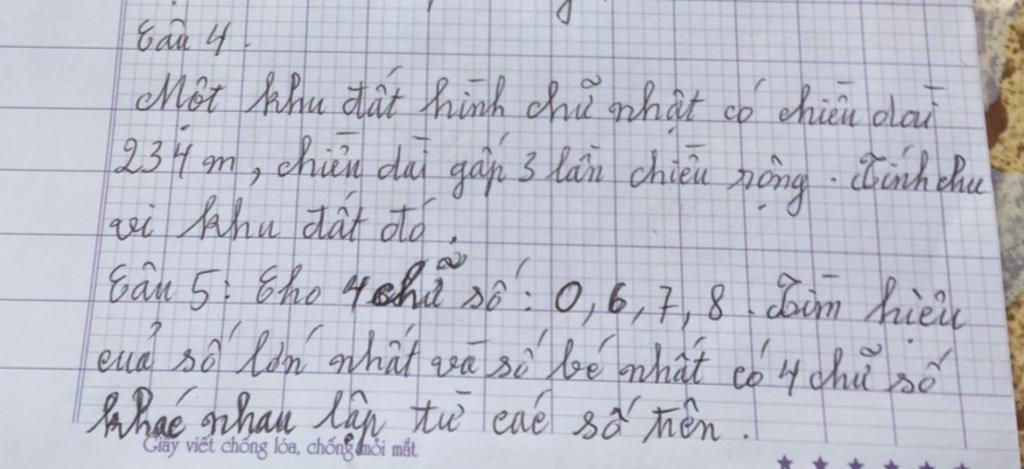 Câu 4.
Một khu đất hình chữ nhật có chiều dài
234 m, chiều dài gấp 3 lần chiều rộng. Tính chu
vi khu đất đó.
Câu 5: Cho 4 chữ số: 0, 6, 7, 8. Tìm hiệu
của số lớn nhất và số bé nhất có 4 chữ số
khác nhau lập từ các số trên.
Giấy viết chống lóa, chống mỏi mắt